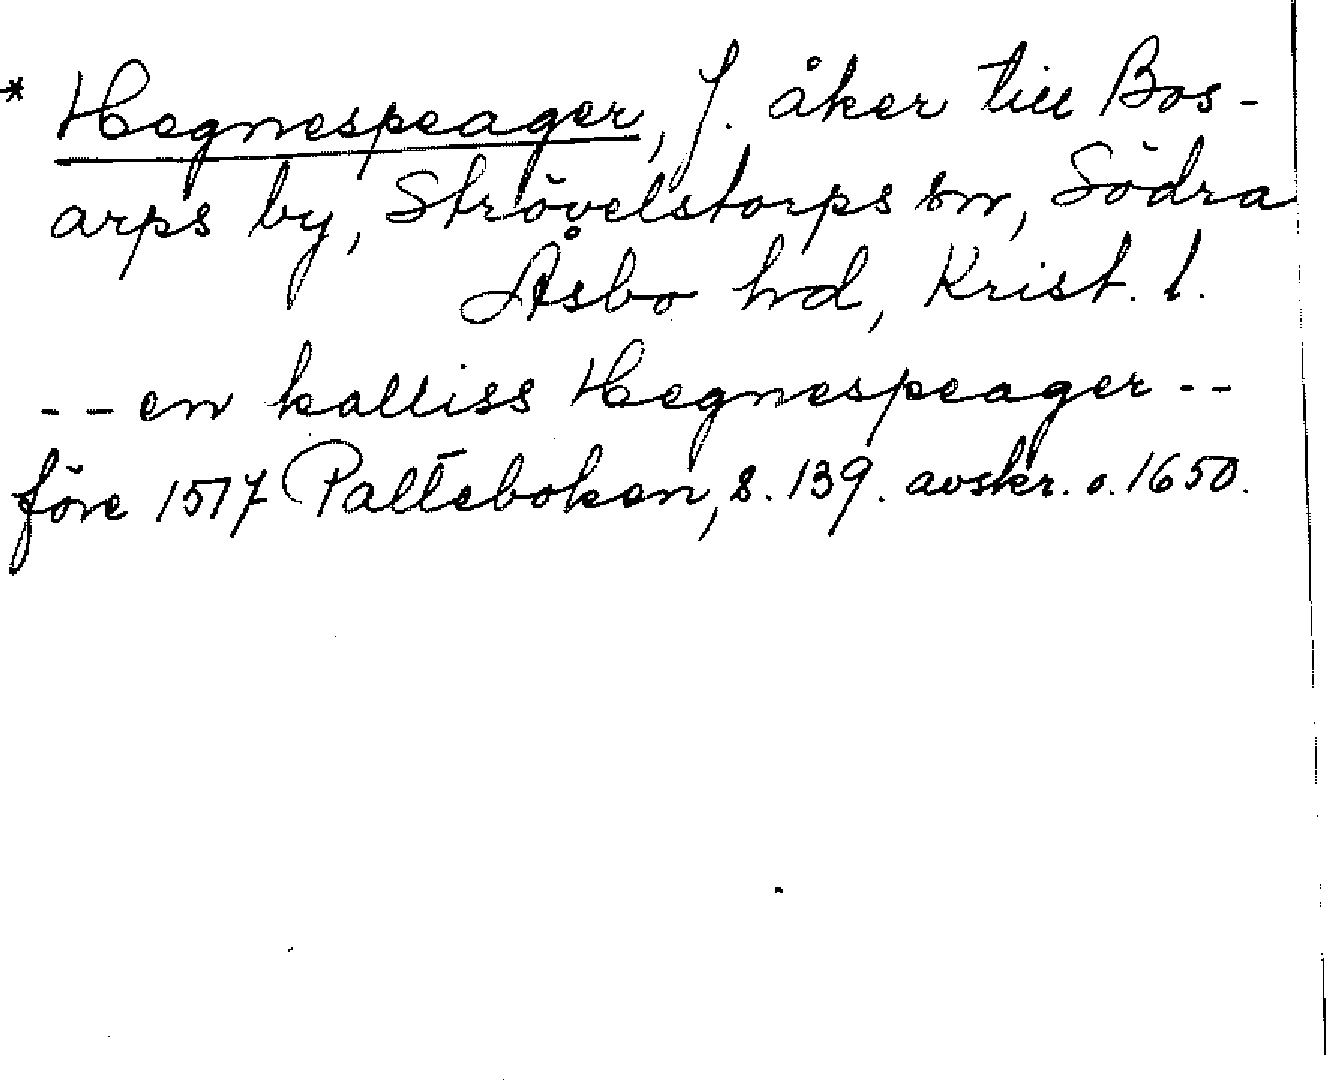 * Hegnespeager, f. åker till Bos-
arps by, Strövelstorps sn, Södra
Åsbo hd, Krist. l.
-- en kalliss Hegnespeager --
före 1517 Palteboken, s. 139. avskr. o. 1650.